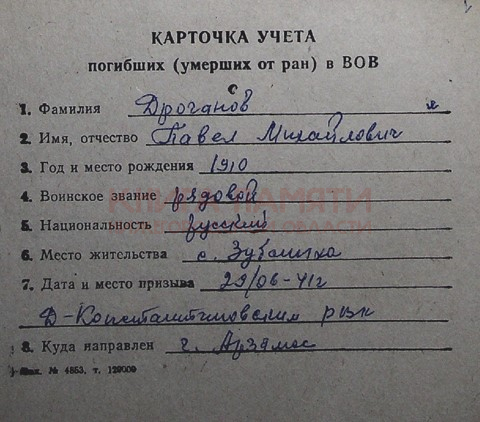 КАРТОЧКА УЧЕТА
погибших (умерших от ран) в ВОВ
С
1. Фамилия Дроганов
2. Имя, отчество Павел Михайлович
3. Год и место рождения 1910
4. Воинское звание рядовой
КНИГА ПАМЯТИ
5. Национальность русский
НИЖЕГОРОДСКОЙ ОБЛАСТИ
6. Место жительства с. Зубаниха
7. Дата и место призыва 29/06-41г
Д-Константиновским рвк
8. Куда направлен г. Арзамас
Зак. № 4853, т. 129000